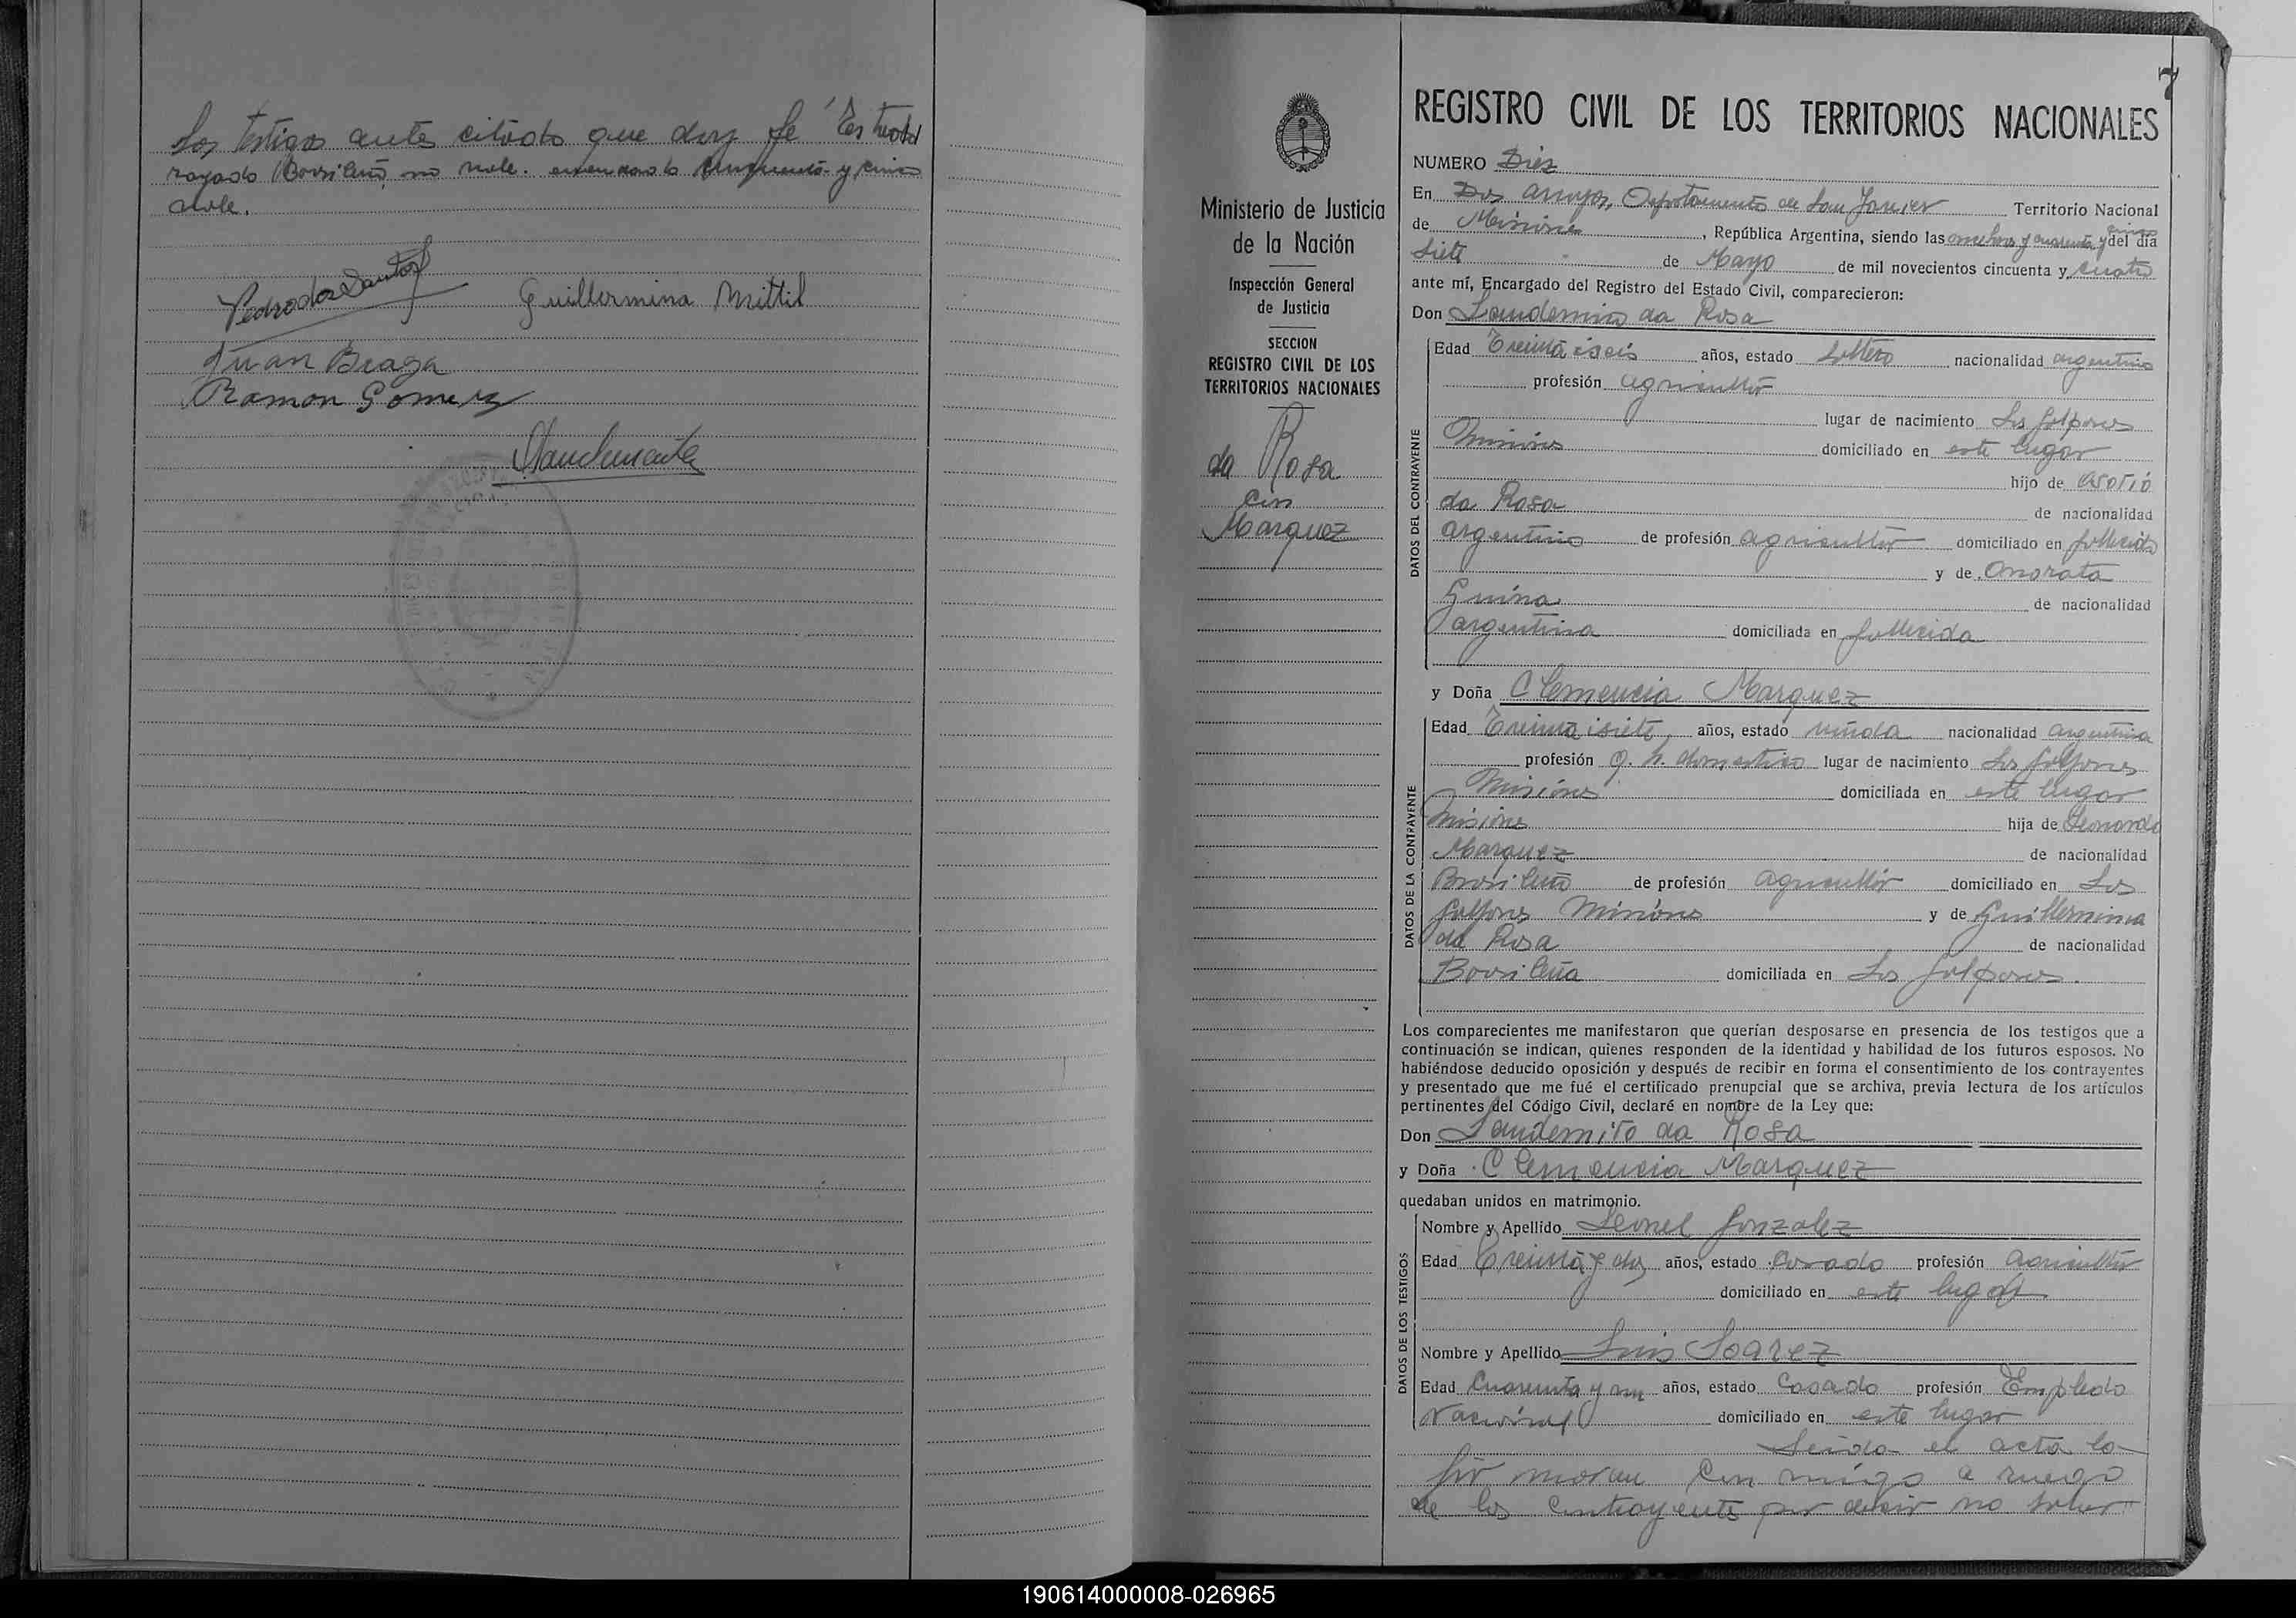 Los testigos antes citado que doy fe "Es
rayado Brasileño, no vale. enmendado cincuenta y cinco
vale.
Pedro dos Santos
Guillermina Mittil
Juan Braga
Ramon Gomez
7
REGISTRO CIVIL DE LOS TERRITORIOS NACIONALES
Ministerio de Justicia
de la Nación
Inspección General
de Justicia
SECCION
REGISTRO CIVIL DE LOS
TERRITORIOS NACIONALES
da Rosa
con
Marquez
NUMERO Diez
En Dos arroyos, Departamento de San Javier Territorio Nacional
de Misiones, República Argentina, siendo las once horas y cuarenta y cinco del día
Siete de Mayo de mil novecientos cincuenta y cuatro
ante mí, Encargado del Registro del Estado Civil, comparecieron:
Don Laudemiro da Rosa
DATOS DEL CONTRAYENTE
Edad Treinta i seis años, estado soltero nacionalidad argentino
profesión agricultor
lugar de nacimiento Los Galpones
Misiones domiciliado en este lugar
hijo de
da Rosa de nacionalidad
argentino de profesión agricultor domiciliado en fallecido
y de Onorata
Guina de nacionalidad
argentina domiciliada en fallecida
y Doña Clemencia Marquez
DATOS DE LA CONTRAYENTE
Edad Treinta i siete años, estado viuda nacionalidad argentina
profesión q. h. domestico lugar de nacimiento Los Galpones
Misiones domiciliada en este lugar
Misiones hija de Leonardo
Marquez de nacionalidad
Brasileño de profesión agricultor domiciliado en Los
Galpones Misiones y de Guillermina
da Rosa de nacionalidad
Brasileña domiciliada en Los Galpones.
Los comparecientes me manifestaron que querían desposarse en presencia de los testigos que a
continuación se indican, quienes responden de la identidad y habilidad de los futuros esposos. No
habiéndose deducido oposición y después de recibir en forma el consentimiento de los contrayentes
y presentado que me fué el certificado prenupcial que se archiva, previa lectura de los artículos
pertinentes del Código Civil, declaré en nombre de la Ley que:
Don Laudemiro da Rosa
y Doña Clemencia Marquez
quedaban unidos en matrimonio.
DATOS DE LOS TESTIGOS
Nombre y Apellido Leonel Gonzalez
Edad Treinta y dos años, estado casado profesión agricultor
domiciliado en este lugar
Nombre y Apellido Luis Soarez
Edad Cuarenta y un años, estado Casado profesión Empledo
Nacional domiciliado en este lugar
Leida el acta la
firmaran con migo a ruego
de los contrayente por decir no saber
190614000008-026965